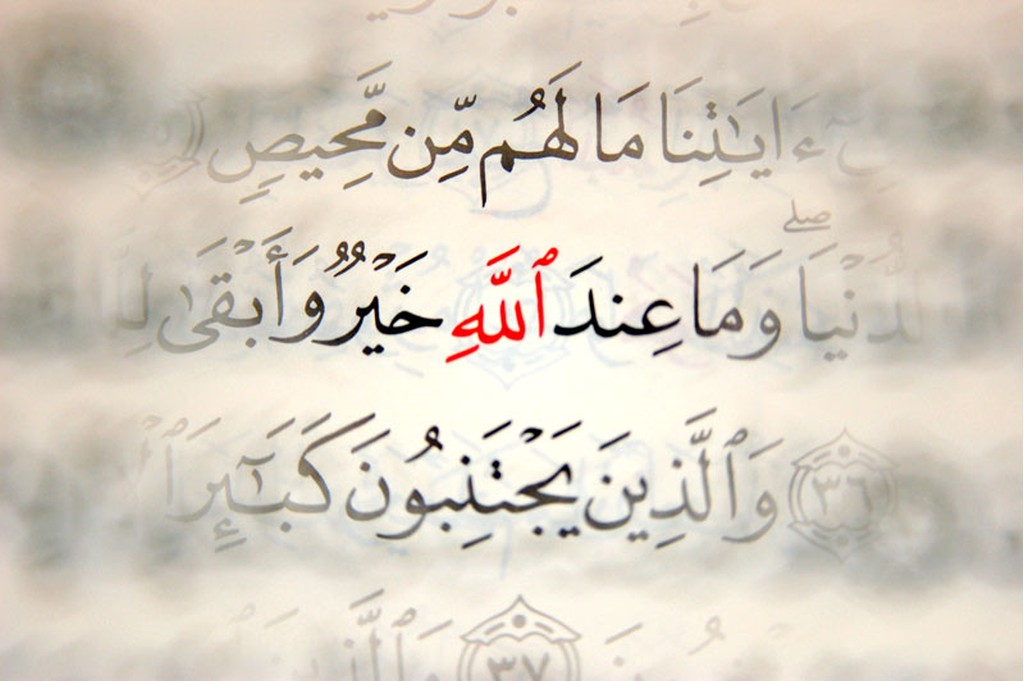 ءَايَـٰتِنَا مَا لَهُم مِّن مَّحِيصٍ
ٱلدُّنْيَا ۖ وَمَا عِندَ ٱللَّهِ خَيْرٌ وَأَبْقَىٰ
٣٦ وَٱلَّذِينَ يَجْتَنِبُونَ كَبَـٰٓئِرَ
وَٱلَّذِينَ ٣٧